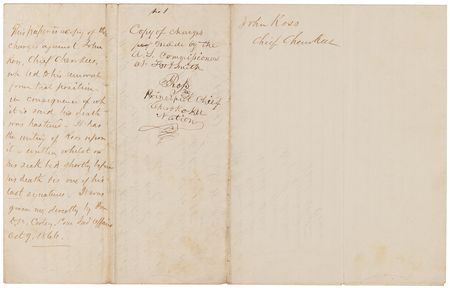 This paper is a copy of the
charges against John
Ross, Chief Cherokees,
which led to his removal
from that position
in consequence of wh
it is said his death
was hastened. It has
the writing of Ross upon
it written whilst on
his sick bed shortly before
his death & is one of his
last signatures. It was
given me directly by Hon
D.N. Cooley, Com Ind Affairs
Oct 9, 1866.
No 1
Copy of charges
made by the
U.S. Commissioners
at Fort Smith
Ross
Principal Chief
Cherokee
Nation
John Ross
Chief Cherokee